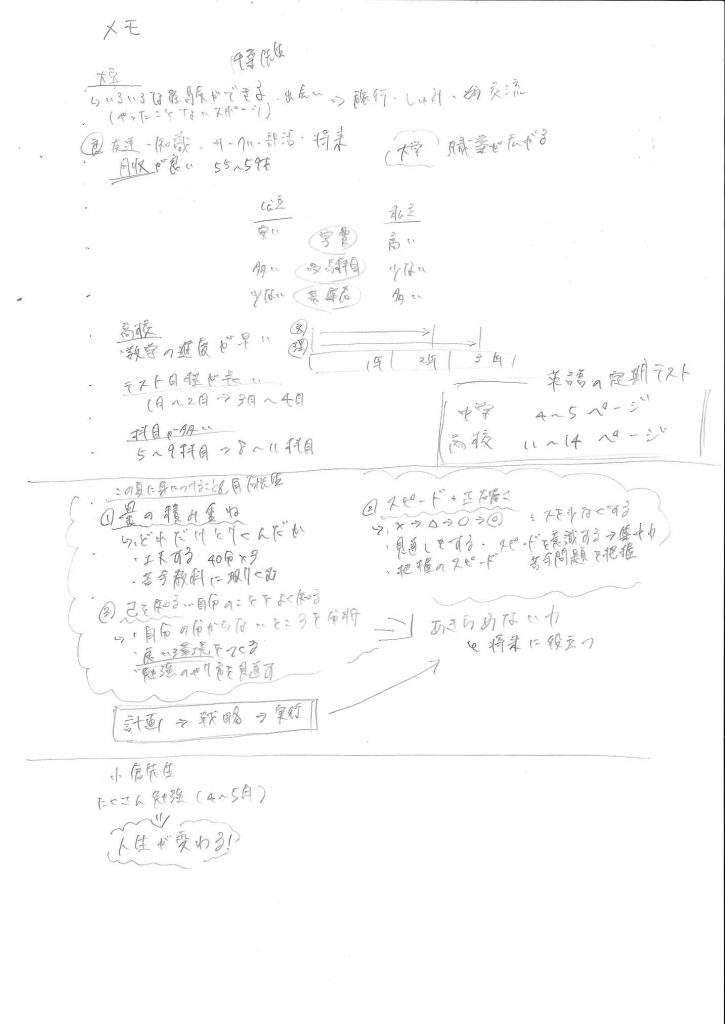 メモ
先生
大学
↳いろいろな経験ができる、出会い ⇒ 旅行・しゅみ・交流
(やったことないスポーツ)
友達・知識・サークル・部活・将来
大学 職業が広がる
月収が良い 55~59才
公立 私立
安い 学費 高い
多い 受験科目 少ない
少ない 多い
高校
・数学の進度が早い
文
理
1年 2年 3年
・テスト日程が長い
1日~2日→3日~4日
英語の定期テスト
中学 4~5ページ
高校 11~14ページ
・科目が多い
5~9科目→8~11科目
この夏に身につけること 先生
①量の積み重ね
↳どれだけとりくんだか
・工夫する 40分×3
・苦手教科に取りくむ
②スピード+正確さ
↳×→△→○→◎ ミスを少なくする
・見直しをする・スピードを意識する→集中力
・把握のスピード 苦手問題を把握
③己を知る…自分のことをよく知る
↳・自分の分からないところを分析
・良い環境をつくる
・勉強のやり方を見直す
あきらめない力
↳将来に役立つ
計画→戦略→実行
小倉先生
たくさん勉強(4~5時)
人生が変わる!